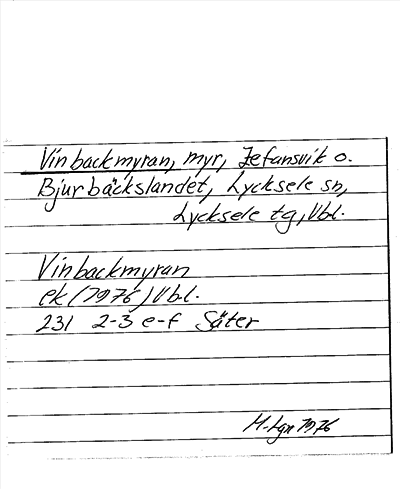 Vinbackmyran, myr, Zefansvik o.
Bjurbäckslandet, Lycksele sn,
Lycksele tg, Vbl.
Vinbackmyran
ek (1976) Vbl.
231 2-3 e-f Säter
M-Lgn 1976